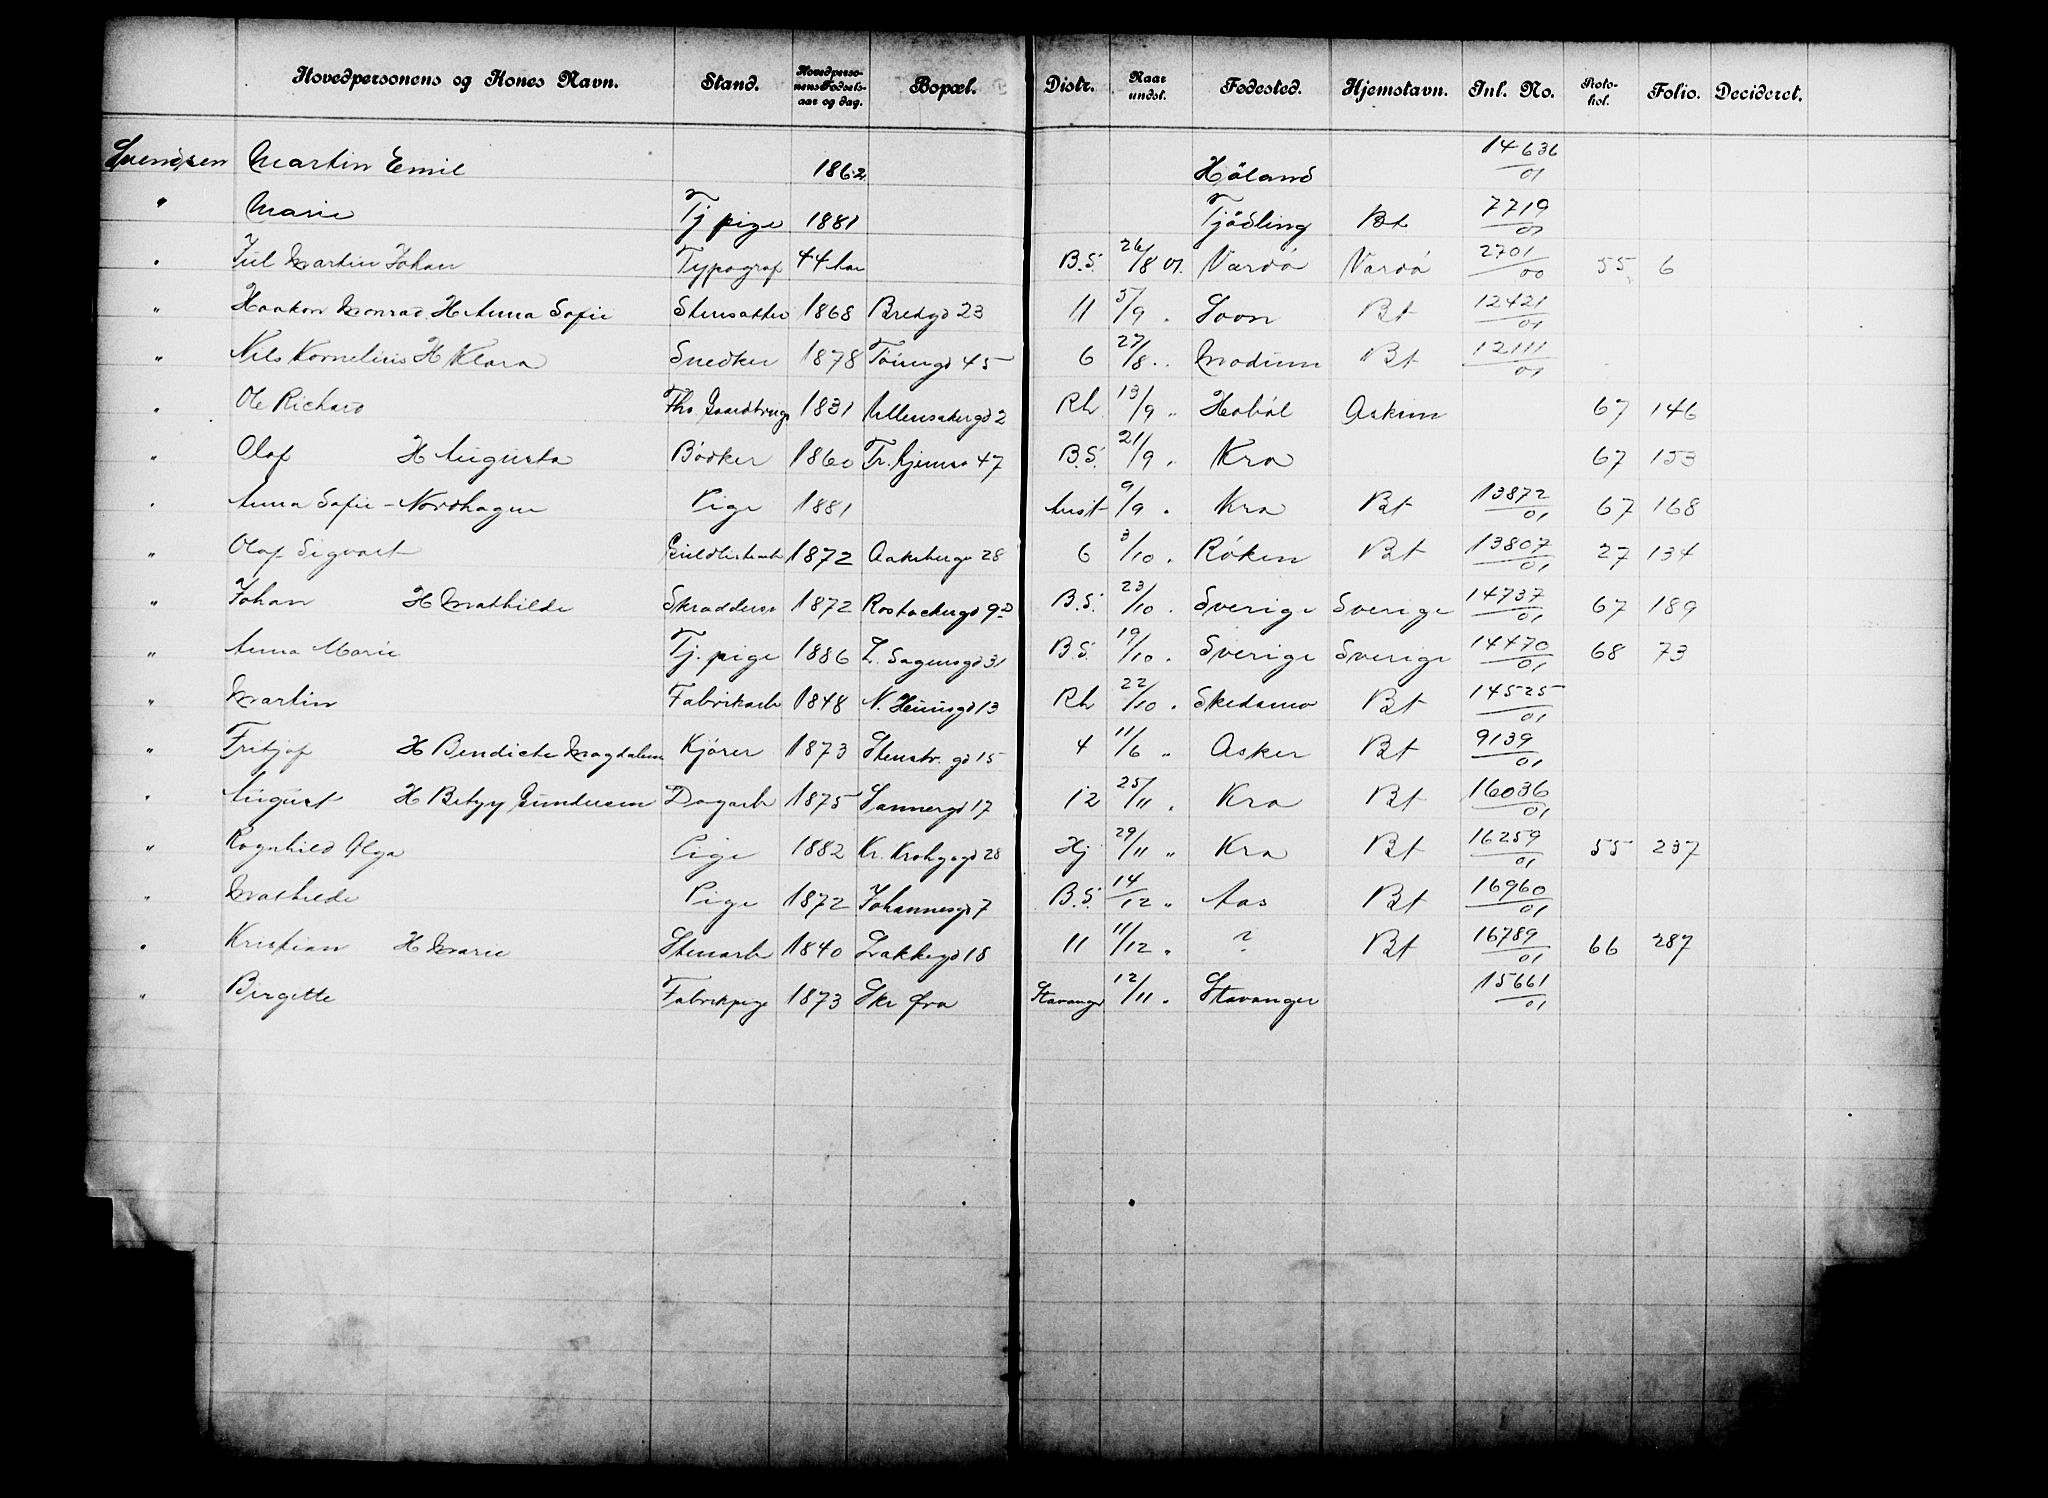 Hovedpersonens og Kones Navn. Stand. Hovedpersonens Fødselsaar og dag. Bopæl. Distr. Naar undst. Fødested. Hjemstavn. Inl. No. Protokol. Folio. Decideret.
Svendsen Martin Emil 1862 Høland 14636/01
" Marie Tj pige 1881 Tjødling Bt 7719/01
" Juel Martin Johan Typograf 44 aar B.S. 26/8 01. Vardø Vardø 2701/00 55 6
" Haakon Monrad H Anna Sofie 1868 Bredgd 23 11 5/9 " Soon Bt 12421/01
" Nils Kornelius H Klara Snedker 1878 Tøiengd 45 6 27/8 " Modum Bt 12111/01
" Ole Richard Fhv. Gaardbrug 1831 Ullensakergd 2 Rh. 13/9 " Hobøl Askim 67 146
" Olaf H Augusta Bødker 1860 Tr.hjemsv 47 B.S. 21/9 " Kra 67 153
" Anna Sofie - Nordhagen Pige 1881 Anst 9/9 " Kra Bt 13872/01 67 168
" Olaf Sigvart 1872 Aakebergv 28 6 3/10 " Røken Bt 13807/01 27 134
" Johan H Mathilde Skrædders 1872 Rostockergd 9 B.S. 23/10 " Sverige Sverige 14737/01 67 189
" Anna Marie Tj. pige 1886 L. Sagensgd 31 B.S. 19/10 " Sverige Sverige 14470/01 68 73
" Martin Fabrikarb 1848 13 Rh 22/10 " Skedsmo Bt 14525/01
" Fritjof H Bendicte Magdalene Kjører 1873 Stenstr. gd 15 4 11/6 " Asker Bt 9139/01
" August H Betzy Gundersen Dagarb 1875 Sannergd 17 12 25/11 " Kra Bt 16036/01
" Ragnhild Olga Pige 1882 Kr. Krohgsgd 28 Hj 29/11 " Kra Bt 16259/01 55 237
" Mathilde Pige 1872 Johannesgd 7 B.S. 14/12 " Aas Bt 16960/01
" Kristian H Marie Stenarb 1840 Lakkegd 18 11 11/12 " ? Bt 16789/01 66 287
" Birgette Fabrikpige 1873 Skr fra Stavanger 12/11 " Stavanger 15661/01